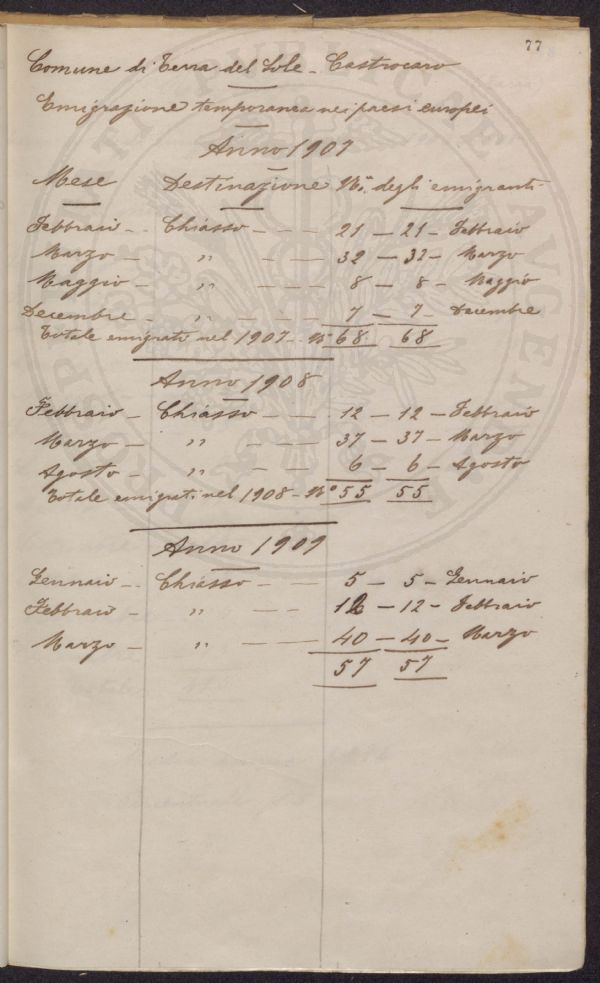 77
Comune di Terra del Sole - Castrocaro
Emigrazione temporanea nei paesi europei
Anno 1907
Mese Destinazione N.° degli emigranti
Febbraio - - Chiasso - - - 21 - 21 - Febbraio
Marzo - „ - - - 32 - 32 - Marzo
Maggio - „ - - - 8 - 8 - Maggio
Decembre - „ - - - 7 - 7 - Decembre
Totale emigrati nel 1907 - N° 68 68
Anno 1908
Febbraio - Chiasso - - - 12 - 12 - Febbraio
Marzo - „ - - - 37 - 37 - Marzo
Agosto - „ - - 6 - 6 - Agosto
Totale emigrati nel 1908 - N° 55 55
Anno 1909
Gennaio - - Chiasso - - - 5 - 5 - Gennaio
Febbraio - „ - - 12 - 12 - Febbraio
Marzo - „ - - - 40 - 40 - Marzo
57 57